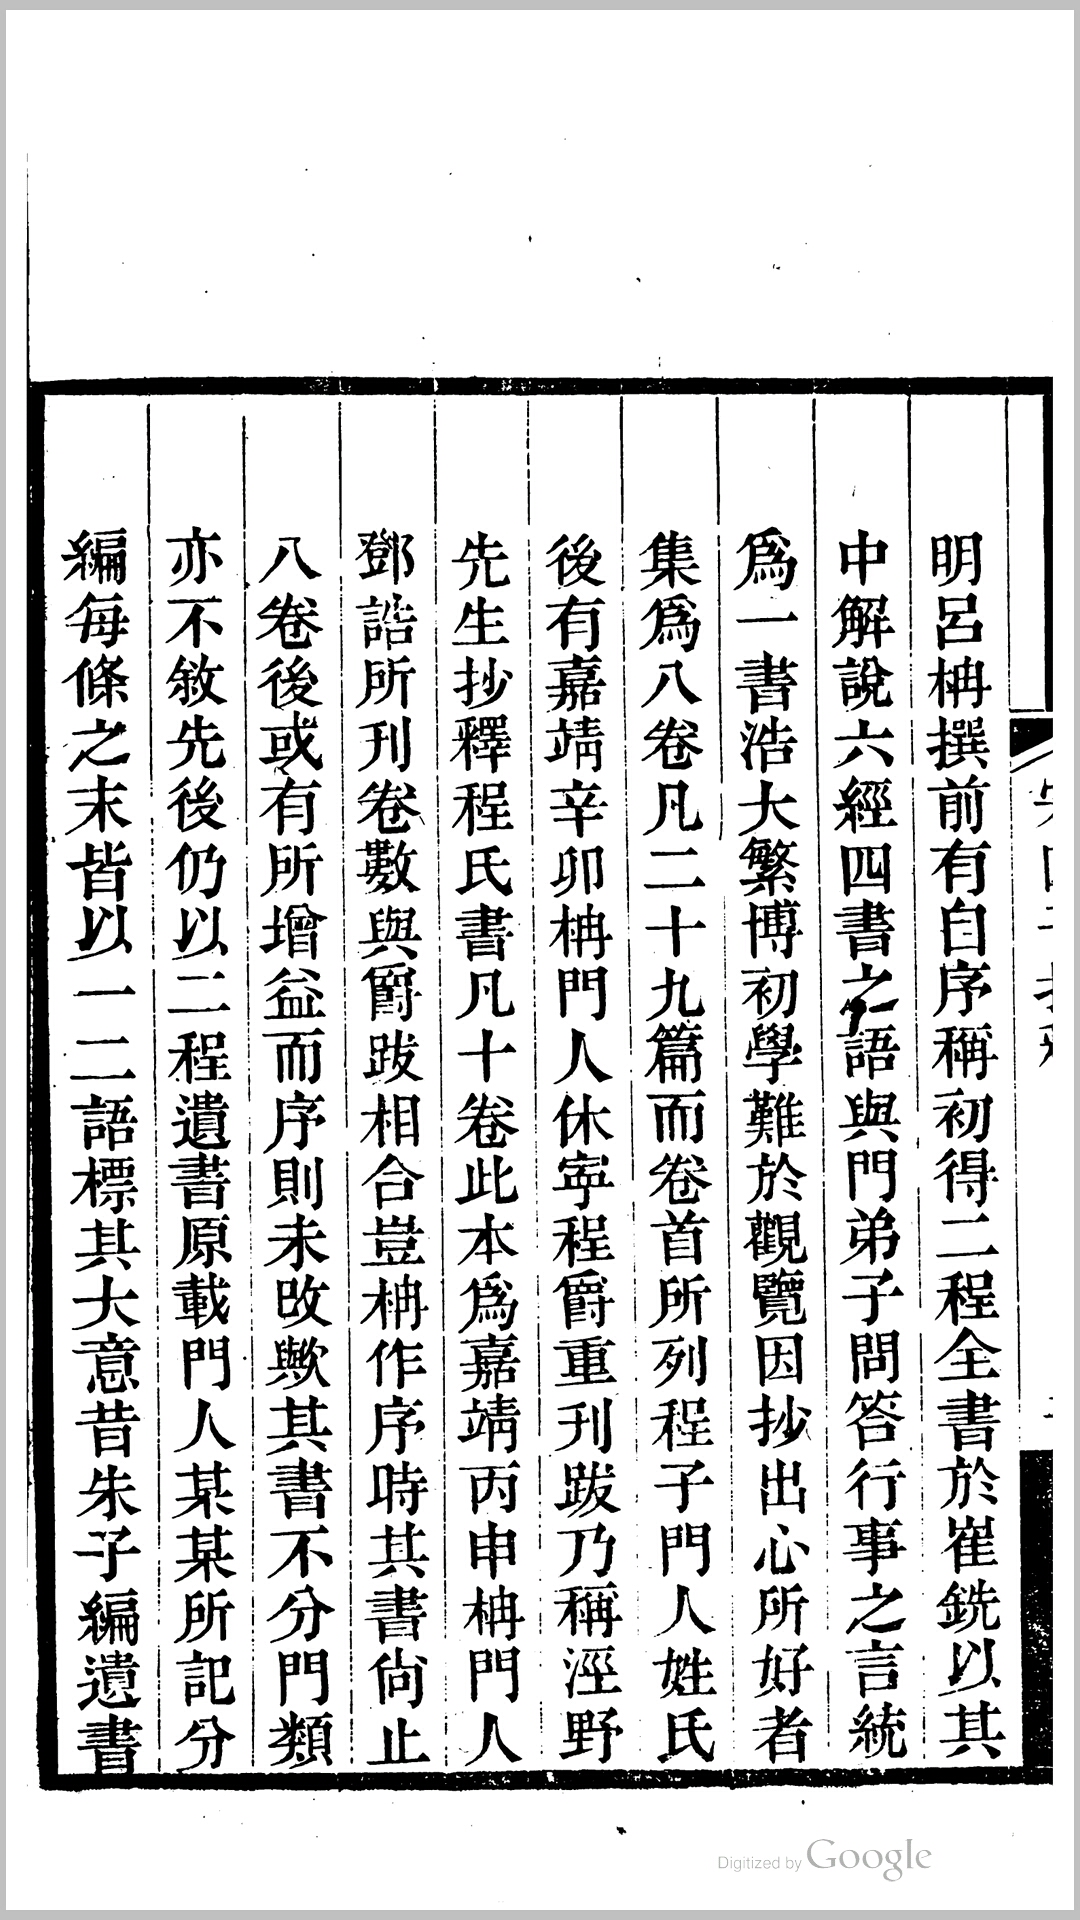 明呂柟撰前有自序稱初得二程全書於崔銑以其
中解說六經四書之語與門弟子問答行事之言統
爲一書浩大繁博初學難於觀覽因抄出心所好者
集爲八卷凡二十九篇而卷首所列程子門人姓氏
後有嘉靖辛卯柟門人休寧程爵重刊跋乃稱涇野
先生抄釋程氏書凡十卷此本爲嘉靖丙申柟門人
鄧誥所刊卷數與爵跋相合豈柟作序時其書尙止
八卷後或有所增益而序則未改歟其書不分門類
亦不敘先後仍以二程遺書原載門人某某所記分
編每條之末皆以一二語標其大意昔朱子編遺書
Digitized by Google